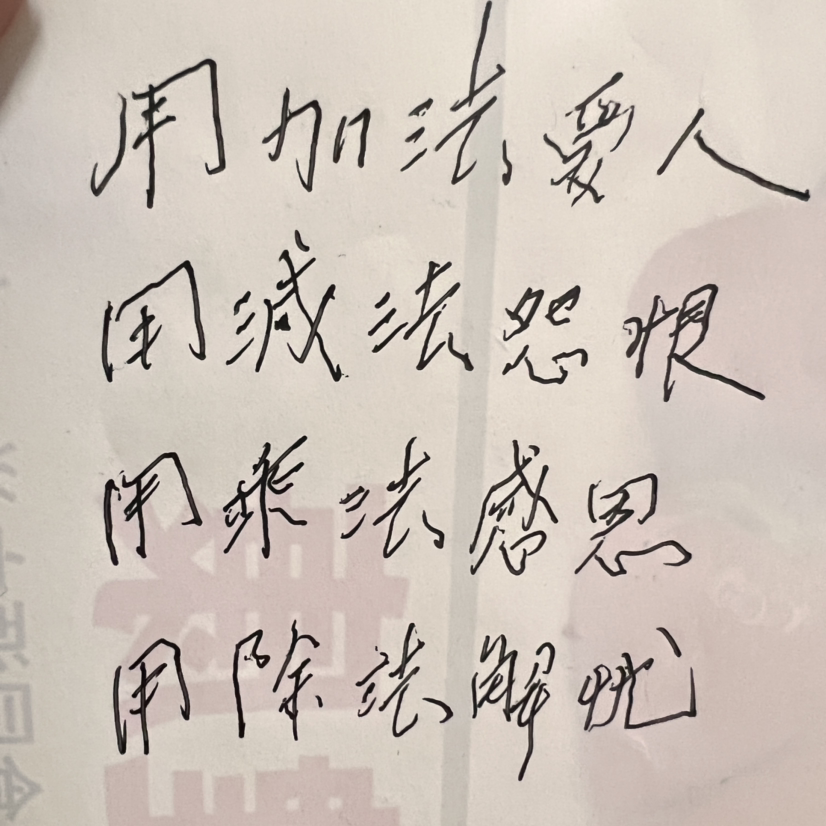 用加法愛人
用減法怨恨
用乘法感恩
用除法解忧